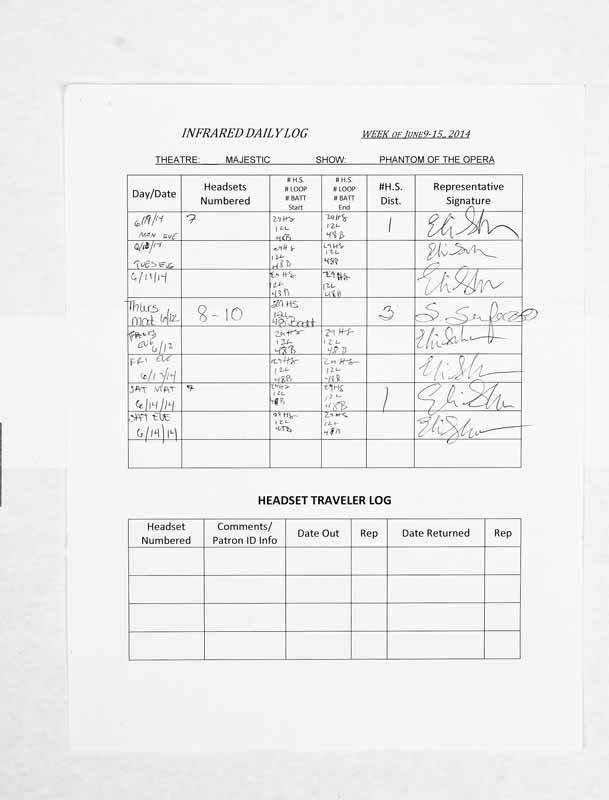 INFRARED DAILY LOG WEEK OF JUNE9-15, 2014
THEATRE: MAJESTIC SHOW: PHANTOM OF THE OPERA
Day/Date Headsets Numbered # H.S. # LOOP # BATT Start # H.S. # LOOP # BATT End #H.S. Dist. Representative Signature
6/9/14 MON EVE 7 29HS 12L 48B 29HS 12L 48B 1
6/10/14 TUES EVE 29HS 12L 48B 29HS 12L 48B
6/11/14 29HS 12L 48B 29HS 12L 48B
Thurs mat 6/12 8-10 29 HS 12L 48 Batt 3
THURS EVE 6/12 29 HS 12L 48B 29 HS 12L 48B
FRI EVE 6/13/14 29HS 12L 48B 29HS 12L 48B
SAT MAT 6/14/14 7 29HS 12L 48B 29HS 12L 48B 1
SAT EVE 6/14/14 29HS 12L 48B 29HS 12L 48B
HEADSET TRAVELER LOG
Headset Numbered Comments/ Patron ID Info Date Out Rep Date Returned Rep